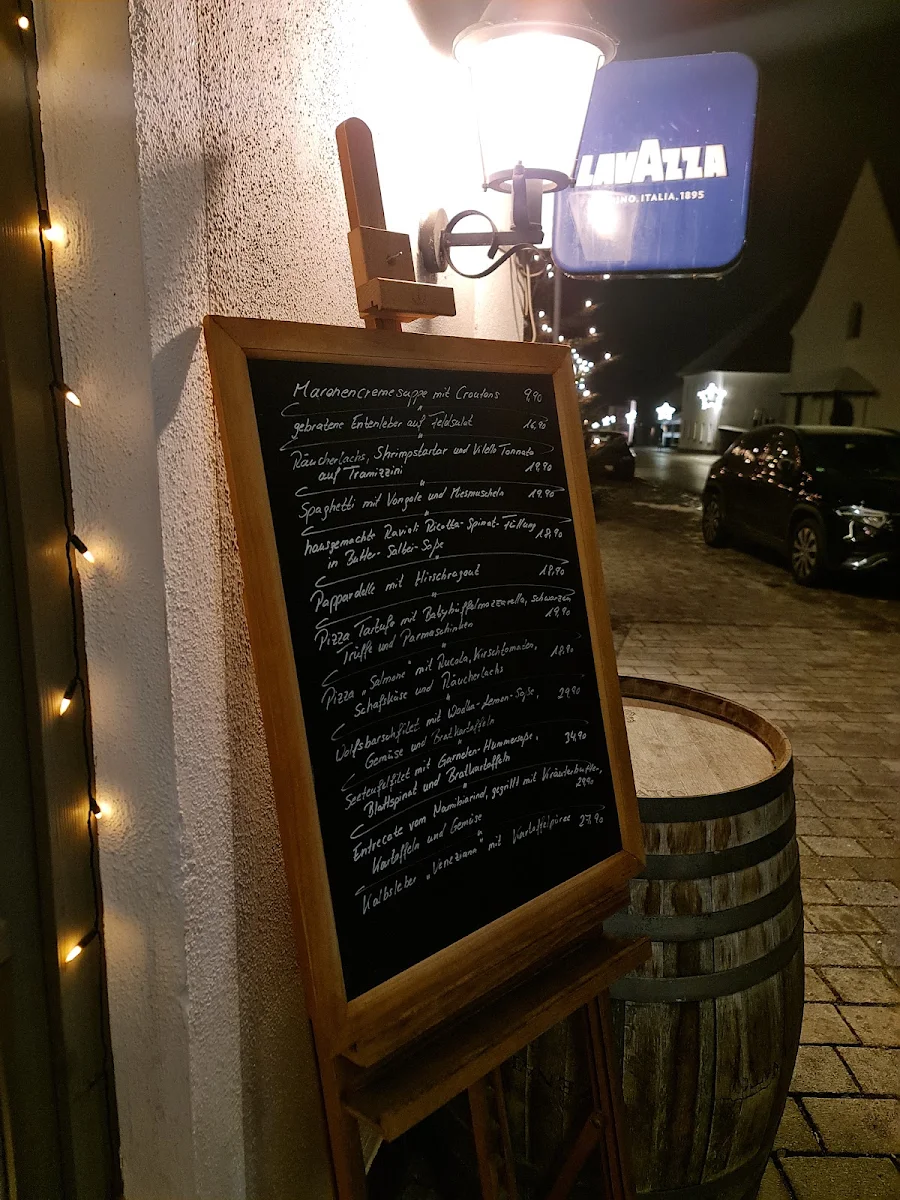 LAVAZZA
INO, ITALIA, 1895
Maronencremesuppe mit Croutons 9,90
gebratene Entenleber auf Feldsalat 16,90
Räucherlachs, Shrimpstartar und Vitello Tonnato
auf Tramizzini 19,90
Spaghetti mit Vongole und Miesmuscheln 19,90
hausgemachte Ravioli Ricotta-Spinat-Füllung
in Butter-Salbei-Soße 18,90
Pappardelle mit Hirschragout 18,90
Pizza Tartufo mit Babybüffelmozzarella, schwarzen
Trüffe und Parmaschinken 19,90
Pizza „Salmone" mit Rucola, Kirschtomaten,
Schafskäse und Räucherlachs 18,90
Wolfsbarschfilet mit Wodka-Lemon-Soße, 29,90
Gemüse und Bratkartoffeln
Seeteufelfilet mit Garnelen-Hummersoße, 34,90
Blattspinat und Bratkartoffeln
Entrecote vom Namibiarind, gegrillt mit Kräuterbutter,
Kartoffeln und Gemüse 29,90
Kalbsleber „Veneziana" mit Kartoffelpüree 27,90